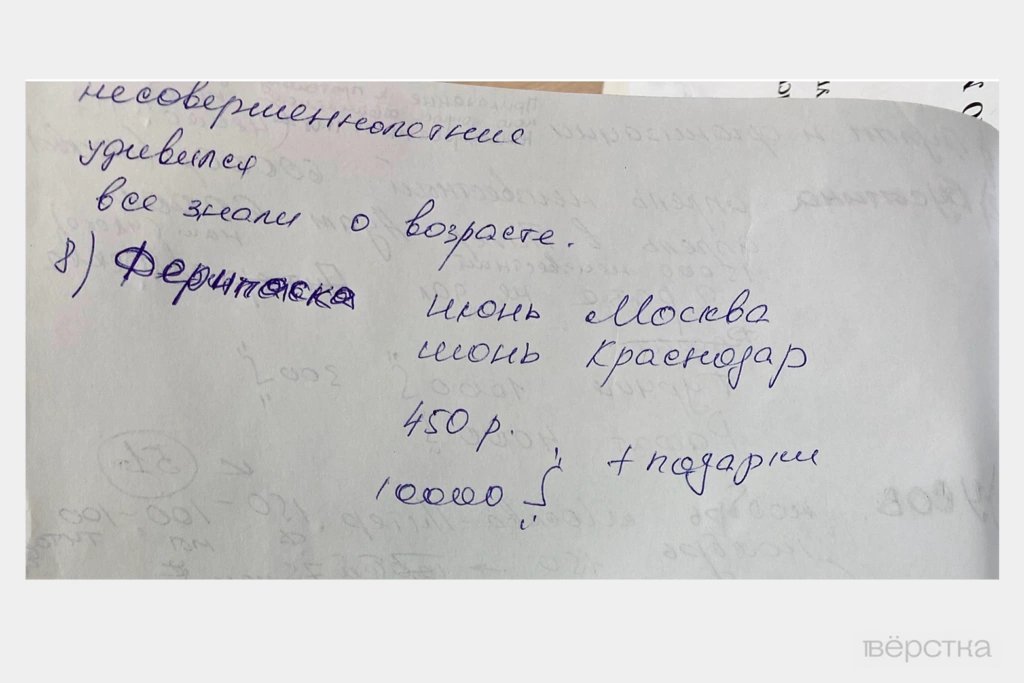 несовершеннолетние
удивился
все знали о возрасте.
8)
июнь Москва
июнь Краснодар
450 р.
10000 + подарки
вёрстка